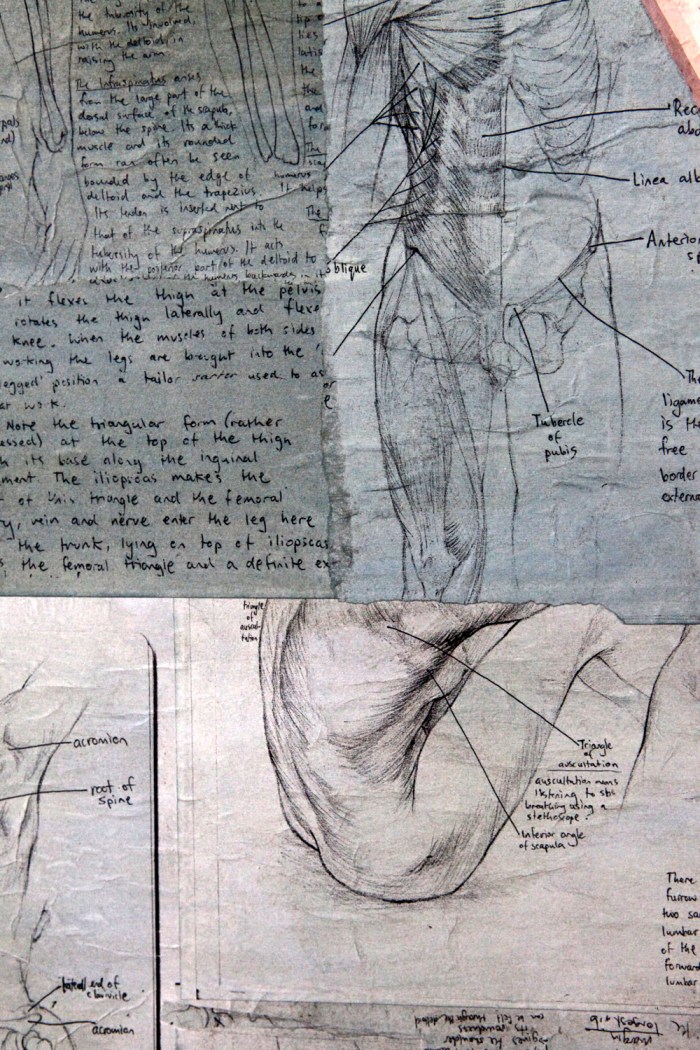 tuberosity of the
humerus. Its involved,
with the deltoid, in
raising the arm.
The Infraspinatus arises
from the large part of the
dorsal surface of the scapula,
below the spine. Its a thick
muscle and its rounded
form can often be seen
bounded by the edge of
deltoid and the trapezius. It
Its tendon is inserted next to
that of the supraspinatus into the
tuberosity of the humerus. It acts
with the posterior part of the deltoid to
the humerus backwards
humerus
helps
The
it flexes the thigh at the pelvis
rotates the thigh laterally and flexe
knee. When the muscles of both sides
working the legs are brought into the
legged' position a tailor used to as
at work.
Note the triangular form (rather
essed) at the top of the thigh
h its base along the inguinal
ment. The iliopsoas makes the
of this triangle and the femoral
ry, vein and nerve enter the leg here
the trunk, lying on top of iliopsoas.
s the femoral triangle and a definite ex-
oblique
Rec
abd
Linea alb
Anterior
sp
Tubercle
of
pubis
The
ligame
is the
free
border
externa
triangle
of
auscul-
tation
Triangle
of
auscultation
auscultation means
listening to
breathing using a
stethoscope.
Inferior angle
of scapula
acromion
root of
spine
lateral end of
clavicle
acromion
There
furrow
two sa
lumbar
of the
forward
lumbar
gives the shoulder
its roundness
can be felt through the deltoid
margin